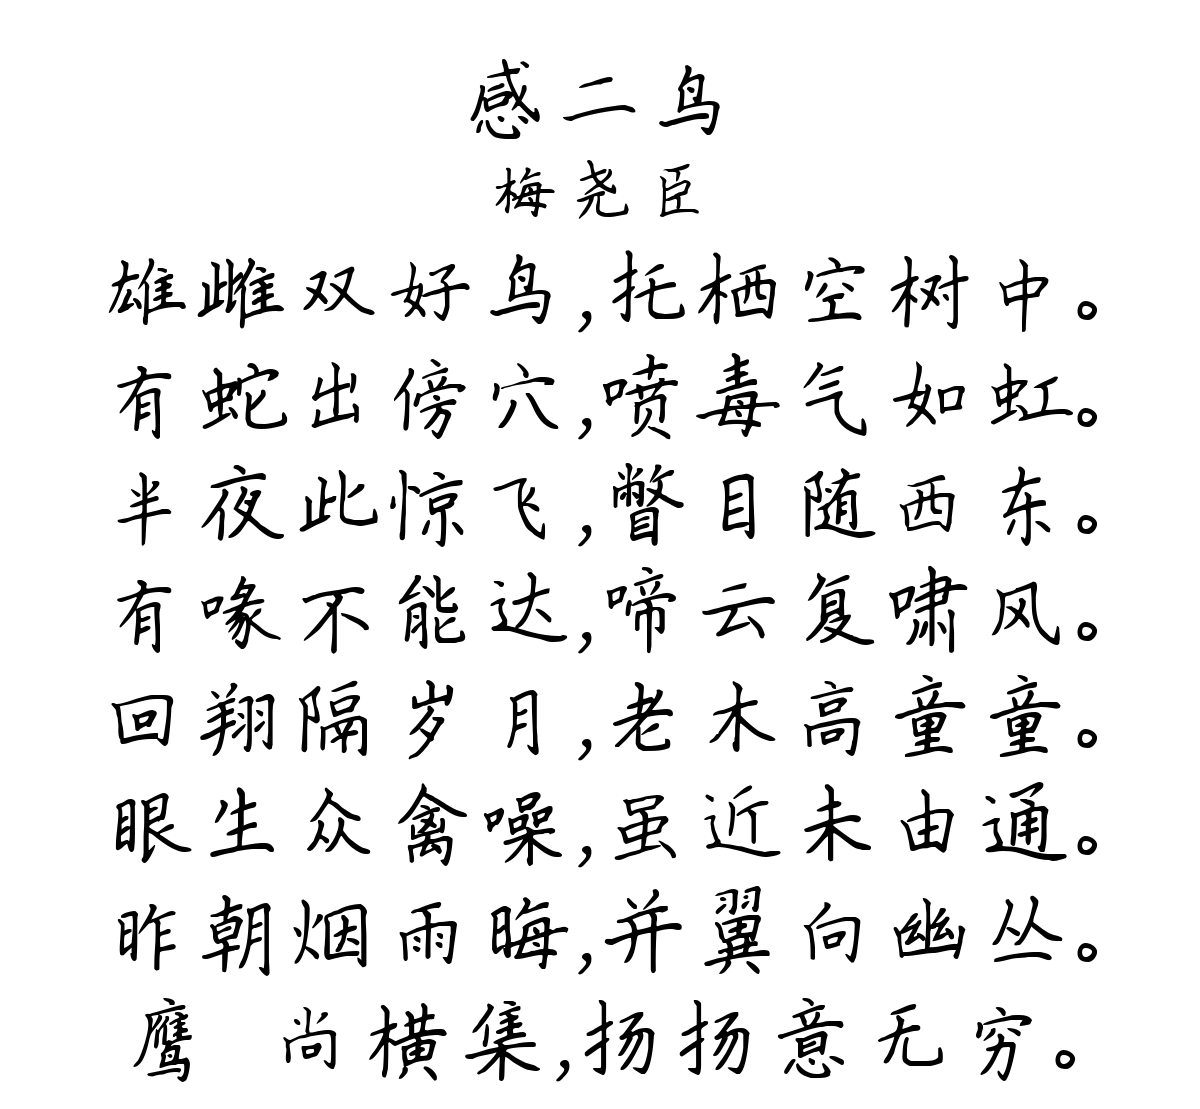 感二鸟
梅尧臣
雄雌双好鸟,托栖空树中。
有蛇出傍穴,喷毒气如虹。
半夜此惊飞,瞥目随西东。
有喙不能达,啼云复啸风。
回翔隔岁月,老木高童童。
眼生众禽噪,虽近未由通。
昨朝烟雨晦,并翼向幽丛。
鹰 尚横集,扬扬意无穷。